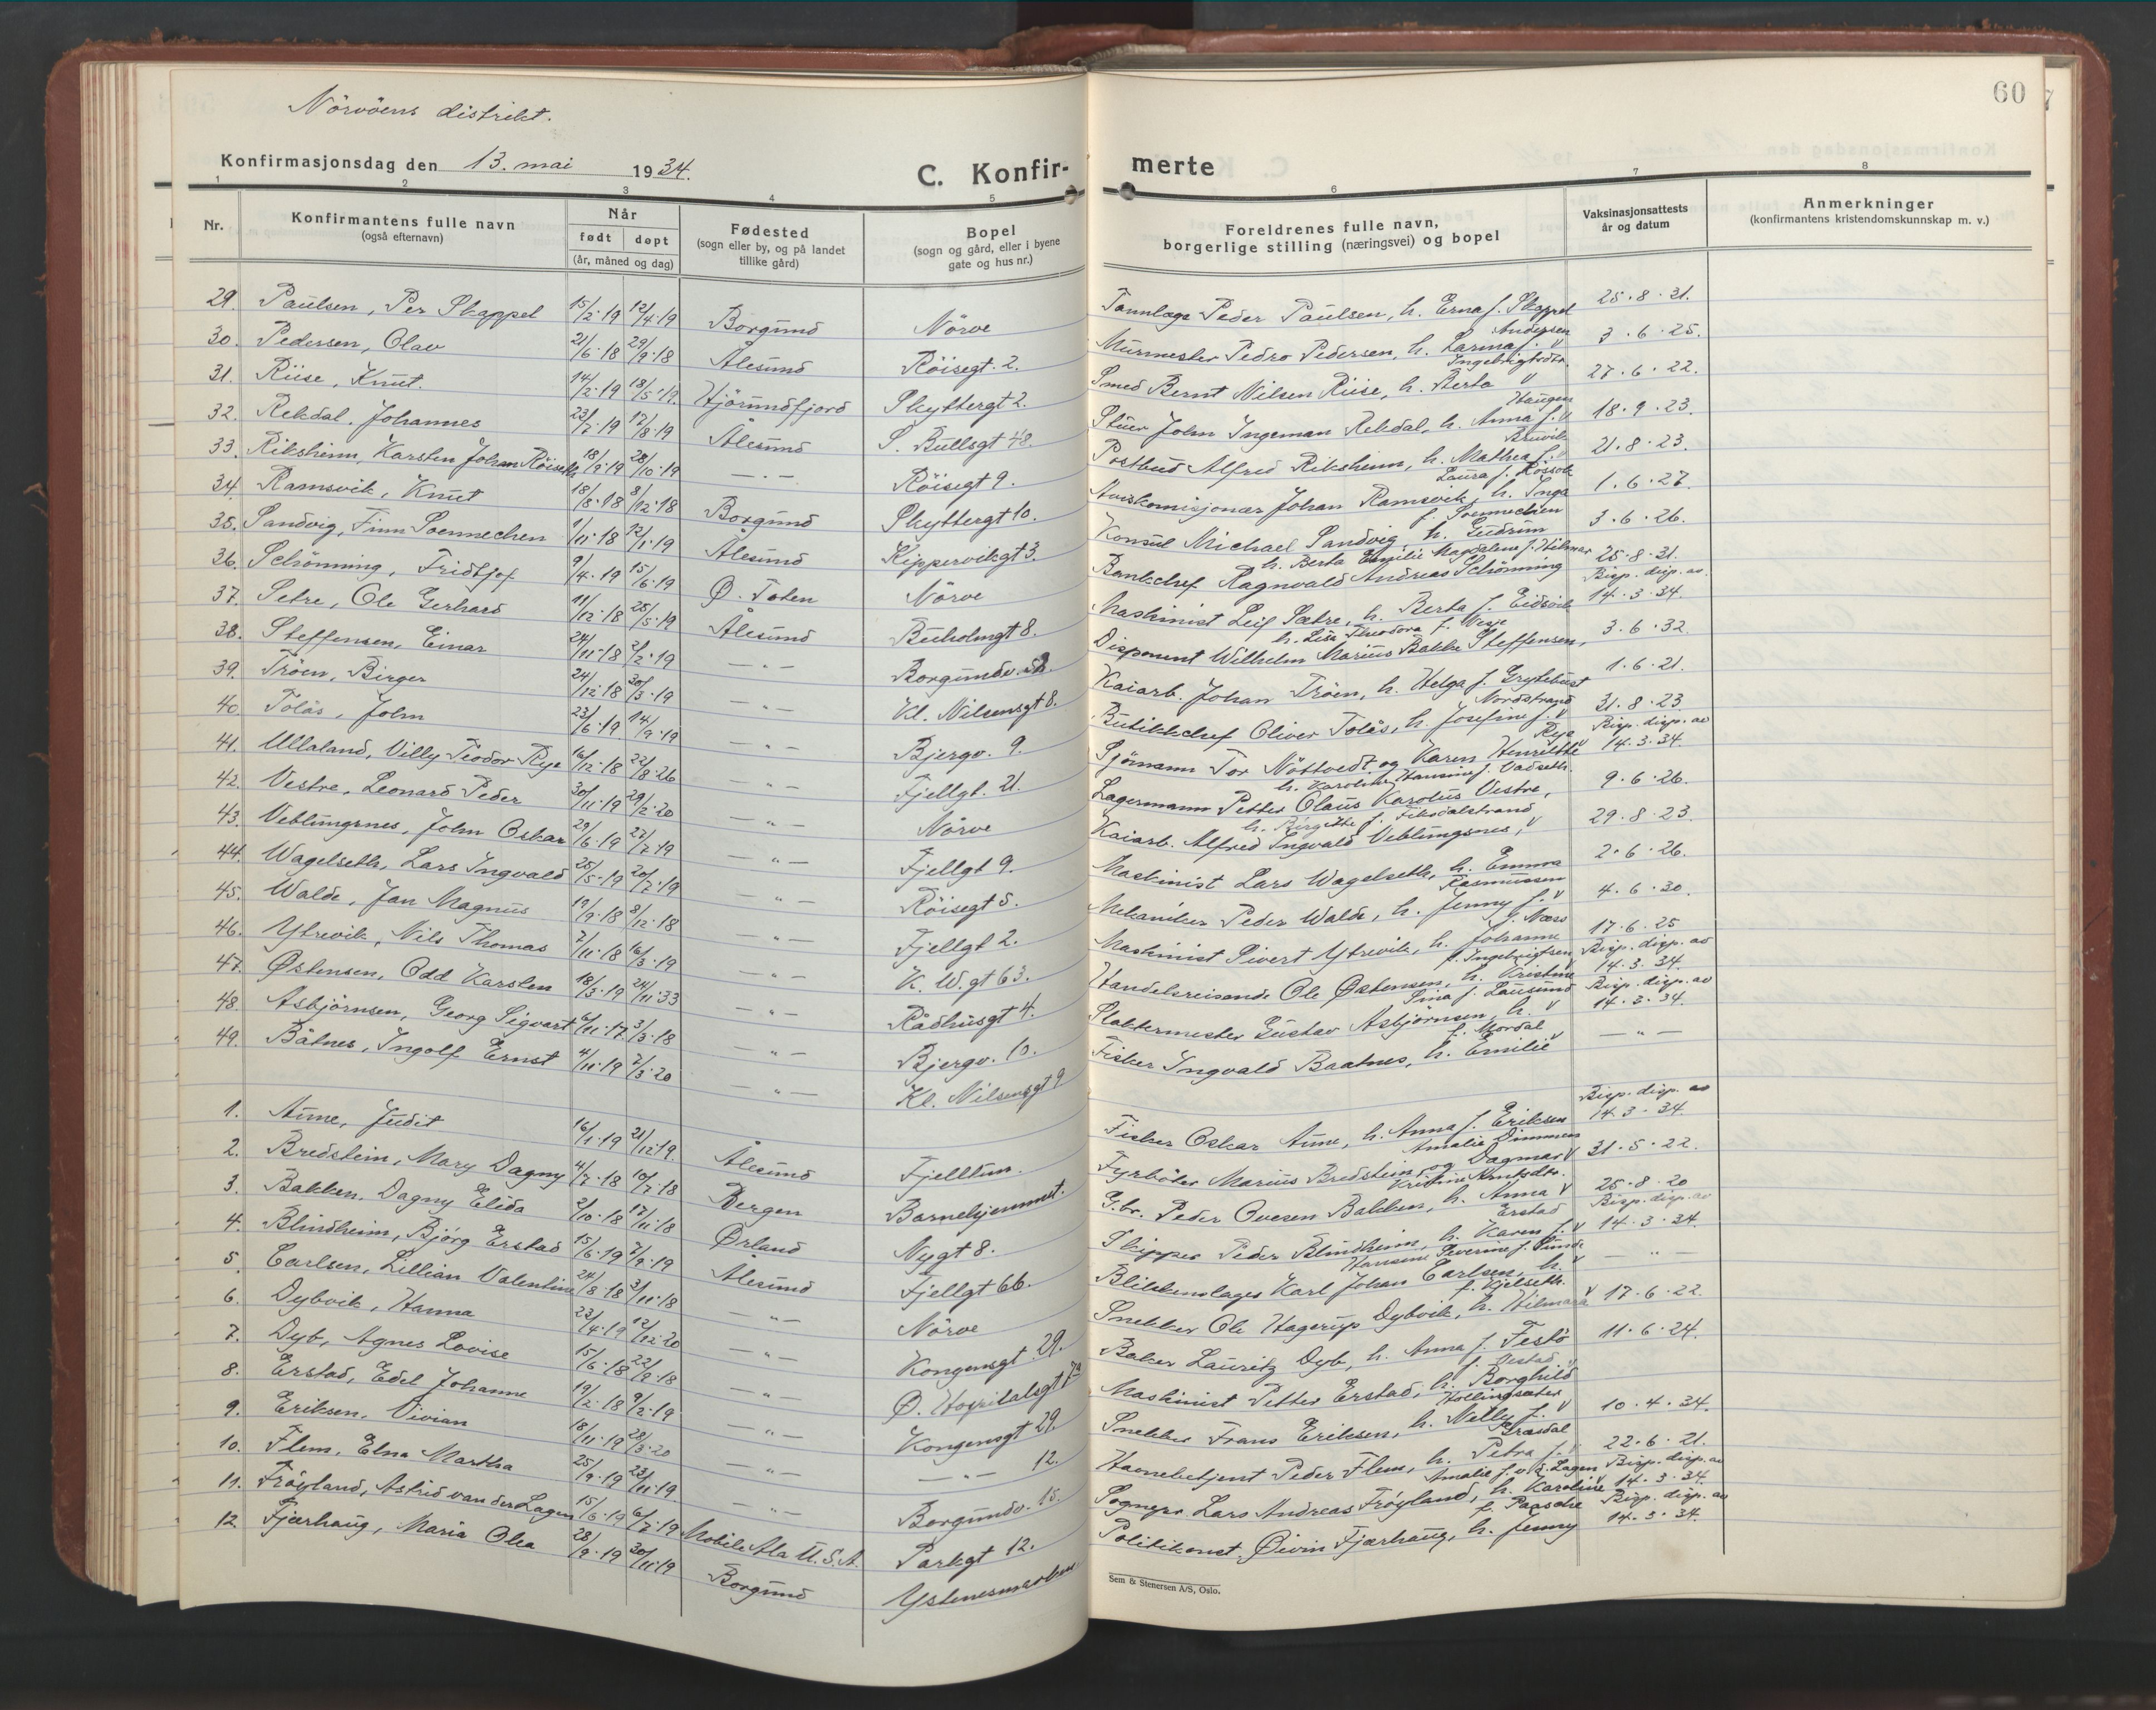 60
Nörvöens distrikt.
Konfirmasjonsdag den 13. mai 1934.
C. Konfir-
merte
1 2 3 4 5 6 7 8
Nr.
Konfirmantens fulle navn
(også efternavn)
Når
født døpt
(år, måned og dag)
Fødested
(sogn eller by, og på landet
tillike gård)
Bopel
(sogn og gård, eller i byene
gate og hus nr.)
Foreldrenes fulle navn,
borgerlige stilling (næringsvei) og bopel
Vaksinasjonsattests
år og datum
Anmerkninger
(konfirmantens kristendomskunnskap m. v.)
29. Paulsen, Per Skappel 15/2·19 12/4·19 Borgund Nörve Tannlæge Peder Paulsen, h. Erna f. Skappel 25·8·31.
30. Pedersen, Olav 21/6·18 29/9·18 Ålesund Röisegt. 2. Murmester Pedro Pedersen, h. Larina f. Andersen 3·6·25.
31. Riise, Knut. 14/2·19 18/5·19. Hjörundfjord Skyttergt 2. Smed Bernt Nilsen Riise, h. Berta Ingebrigtsdtr. 27·6·22.
32. Rekdal, Johannes 23/7·19 17/8·19 Ålesund S. Bullsgt 48. Stuer John Ingeman Rekdal, h. Anna f. Haugen 18·9·23.
33. Riksheim, Karsten Johan Röiseth 18/9·19 28/10·19 — · — Röisegt 9. Postbud Alfred Riksheim, h. Mathea f. Breivik 21·8·23.
34. Ramsvik, Knut 18/8·18 8/12·18 Borgund Skyttergt 10. Johan Ramsvik, h. Inga Laura f. Rössok 1·6·27.
35. Sandvig, Finn Soennechen 1/11·18 12/1·19 Ålesund Kippervikgt 3. Konsul Michael Sandvig, h. Gudrun f. Soennechen 3·6·26.
36. Schönning, Fridtjof 9/4·19 15/6·19 Ø. Toten Nörve Bankchef Ragnvald Andreas Schönning h. Berta Emilie Magdalene f. Hilmar 25·8·31.
37. Setre, Ole Gerhard 11/12·18 25/5·19 Ålesund Buholmgt 8. Maskinist Leif Sætre, h. Berta f. Eidsvik Bisp. disp. av. 14·3·34.
38. Steffensen, Einar 24/11·18 2/2·19 — " — Borgundv. Disponent Wilhelm Marius Bakke Steffensen, h. Lise Theodora f. 3·6·32.
39. Tröen, Birger 24/12·18 30/3·19 — " — Kl. Nilsensgt 8. Kaiarb. Johan Tröen, h. Helga f. Grytebust 1·6·21.
40. Tolås, John 23/6·19. 14/9·19 — " — Bjergv. 9. Butikkchef Oliver Tolås, h. Josefine f. Nordstrand 31·8·23
41. Ullaland, Villy Teodor Rye 16/12·18 22/8·26 — " — Fjellgt. 21. Sjömann Tor Nöttvedt og Karen Henriette Rye Bisp. disp. av 14·3·34.
42. Vestre, Leonard Peder 30/11·19 29/2·20 — " — Nörve Lagermann Petter Olaus Karolus Vestre, h. Karoline Hansine f. Vadseth. 9·6·26.
43. Veblungsnes, John Oskar 29/6·19 27/7·19 — " — Fjellgt 9. Kaiarb. Alfred Ingvald Veblungsnes, h. Birgitte f. Fiksdalstrand 29·8·23.
44. Wagelseth, Lars Ingvald 25/5·19 20/7·19 — " — Röisegt 5. Maskinist Lars Wagelseth, h. Emma 2·6·26.
45. Walde, Jan Magnus 19/9·18 8/12·18 — " — Fjellgt 2. Mekaniker Peder Walde, h. Jenny f. Rasmussen 4·6·30.
46. Ytrevik, Nils Thomas 7/11·18 16/3·19 — " — K. W.gt 63. Maskinist Sivert Ytrevik, h. Johanne f. Næss 17·6·25
47. Østensen, Odd Karsten 18/3·19 24/11·33 — " — Rådhusgt 4. Handelsreisende Ole Østensen, h. Kristine f. Ingebrigtsen Bisp. disp. av 14·3·34.
48. Asbjörnsen, Georg Sigvart 6/11·17. 3/3·18 — " — Bjergv. 10. Slaktermester Gustav Asbjörnsen, h. Sina f. Lausund Bisp. disp. av 14·3·34.
49. Båtnes, Ingolf Ernst 4/11·19 7/3·20 — " — Kl. Nilsensgt 9 Fisker Ingvald Baatnes, h. Emilie f. Mordal — " —
1. Aune, Judit 16/1·19 21/12·19. Ålesund Fjelltun. Fisker Oskar Aune, h. Anna f. Eriksen Bisp. disp. av 14·3·34.
2. Bredstein, Mary Dagny 4/7·18 10/7·18 Bergen Barnehjemmet. Fyrböter Marius Bredstein og Dagmar Amalie Dimmen 31·5·22.
3. Bakken, Dagny Elida 2/10·18 17/11·18 Ørland Nygt 8. G.br. Peder Ovesen Bakken, h. Anna Kristine Arntsdtr. 25·8·20
4. Blindheim, Bjórg Erstad 15/6·19 7/9·19 Ålesund Fjellgt 66. Skipper Peder Blindheim, h. Karen f. Erstad Bisp. disp. av 14·3·34.
5. Carlsen, Lillian Valentine 24/8·18 3/11·18 — " — Nörve Blikkenslager Karl Johan Carlsen, h. Hansine Severine f. Sunde — " —
6. Dybvik, Hanna 23/4·19 12/12·20 — " — Kongensgt 29. Snekker Ole Hagerup Dybvik, h. Hilmara f. Kjelseth. 17·6·22.
7. Dyb, Agnes Lovise 15/6·18 22/9·18 — " — Ø. Hospitalsgt 7a Baker Lauritz Dyb, h. Anna f. Festö 11·6·24.
8. Erstad, Edel Johanne 19/2·18 9/2·19 — " — Kongensgt 29. Maskinist Petter Erstad, h. Borghild f. Vestad
9. Eriksen, Vivian 18/11·19 28/3·20 — " — — " — 12. Snekker Frans Eriksen, h. Nelly f. Hollingsæter 10·4·34.
10. Flem, Elna Martha 25/9·19 23/11·19. — " — Borgundv. 15. Havnebetjent Peder Flem, h. Petra f. 22·6·21.
11. Fröyland, Astrid van der Lagen 15/6·19 6/7·19 Mobile Ala U.S.A. Parkgt 12. Sognepr. Lars Andreas Fröyland, h. Karoline Amalie f. v. d. Lagen Bisp. disp. av 14·3·34.
12 Fjærhaug, Maria Olea 28/9·19 30/11·19 Borgund Ystenesmarken Politikonst. Øivin Fjærhaug, h. Jenny f. Paasche Bisp. disp. av 14·3·34.
Sem & Stenersen A/S, Oslo.